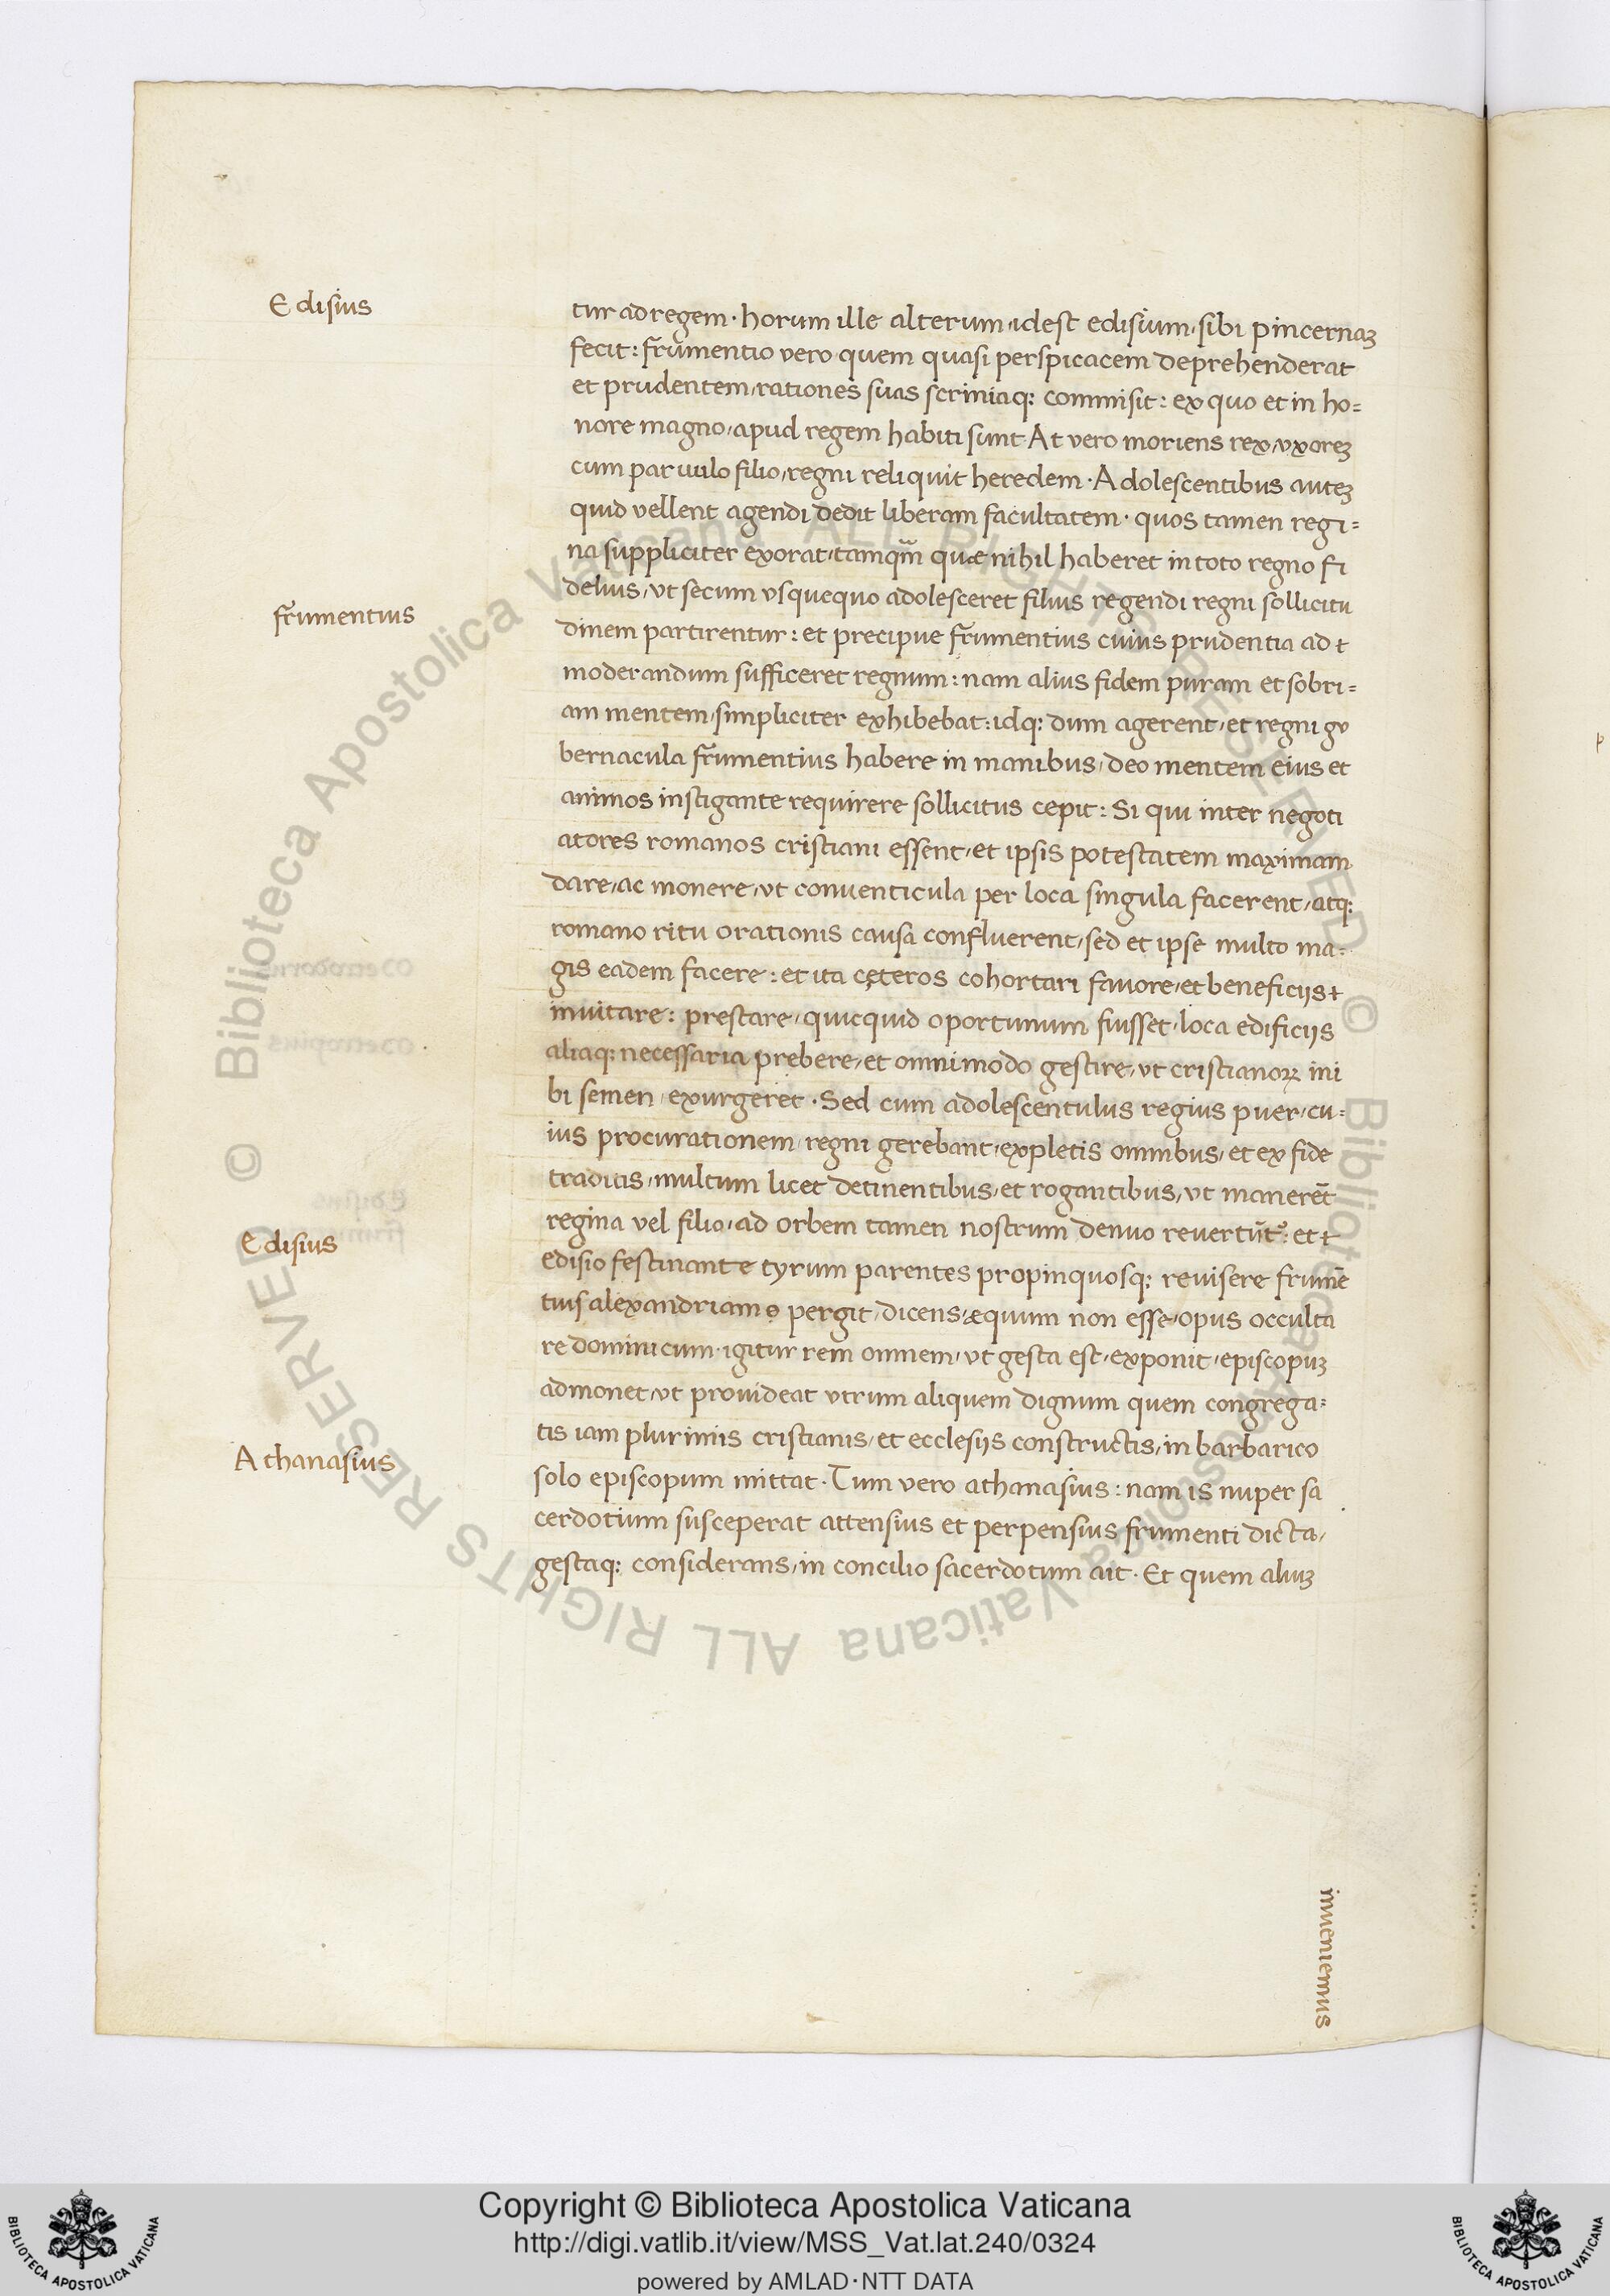 Edisius
tur ad regem · horum ille alterum, idest edisium, sibi pincernaꝫ
fecit : frumentio vero quem quasi perspicacem deprehenderat
et prudentem, rationes suas scriniaq; commisit : ex quo et in ho=
nore magno, apud regem habiti sunt At vero moriens rex, vxoreꝫ
cum paruulo filio, regni reliquit heredem · Adolescentibus auteꝫ
quid vellent agendi dedit liberam facultatem · quos tamen regi=
na suppliciter exorat, tamqm̄ quæ nihil haberet in toto regno fi
delius, vt secum vsquequo adolesceret filius regendi regni sollicitu
frumentius
dinem partirentur : et precipue frumentius cuius prudentia ad
moderandum sufficeret regnum : nam alius fidem puram et sobri=
am mentem, simpliciter exhibebat : idq; dum agerent, et regni gu
bernacula frumentius habere in manibus, deo mentem eius et
animos instigante requirere sollicitus cepit : Si qui inter negoti
atores romanos cristiani essent, et ipsis potestatem maximam
dare, ac monere, vt conuenticula per loca singula facerent, atq;
romano ritu orationis causa confluerent, sed et ipse multo ma=
gis eadem facere : et ita cęteros cohortari fauore, et beneficijs
inuitare : prestare, quicquid oportunum fuisset, loca edificijs
aliaq; necessaria prebere, et omnimodo gestire, vt cristianoꝝ ini
bi semen, exurgeret · Sed cum adolescentulus regius puer, cu=
ius procurationem, regni gerebant, expletis omnibus, et ex fide
traditis, multum licet detinentibus, et rogantibus, vt manerēt
regina vel filio, ad orbem tamen nostrum denuo reuertūt᷑ : et
Edisius
edisio festinante tyrum parentes propinquosq; reuisere frumē
tius alexandriam pergit, dicens, æquum non esse, opus occulta
re dominicum · igitur rem omnem, vt gesta est, exponit, episcopuꝫ
admonet, vt prouideat vtrum aliquem dignum quem congrega=
tis iam plurimis cristianis, et ecclesijs constructis, in barbarico
Athanasius
solo episcopum mittat · Tum vero athanasius : nam is nuper sa
cerdotium susceperat attensius et perpensius frumenti dicta,
gestaq; considerans, in concilio sacerdotum ait · Et quem aliuꝫ
inueniemus
© Biblioteca Apostolica Vaticana ALL RIGHTS RESERVED
© Biblioteca Apostolica Vaticana ALL RIGHTS RESERVED
Copyright © Biblioteca Apostolica Vaticana
http://digi.vatlib.it/view/MSS_Vat.lat.240/0324
powered by AMLAD·NTT DATA
BIBLIOTECA APOSTOLICA VATICANA
BIBLIOTECA APOSTOLICA VATICANA